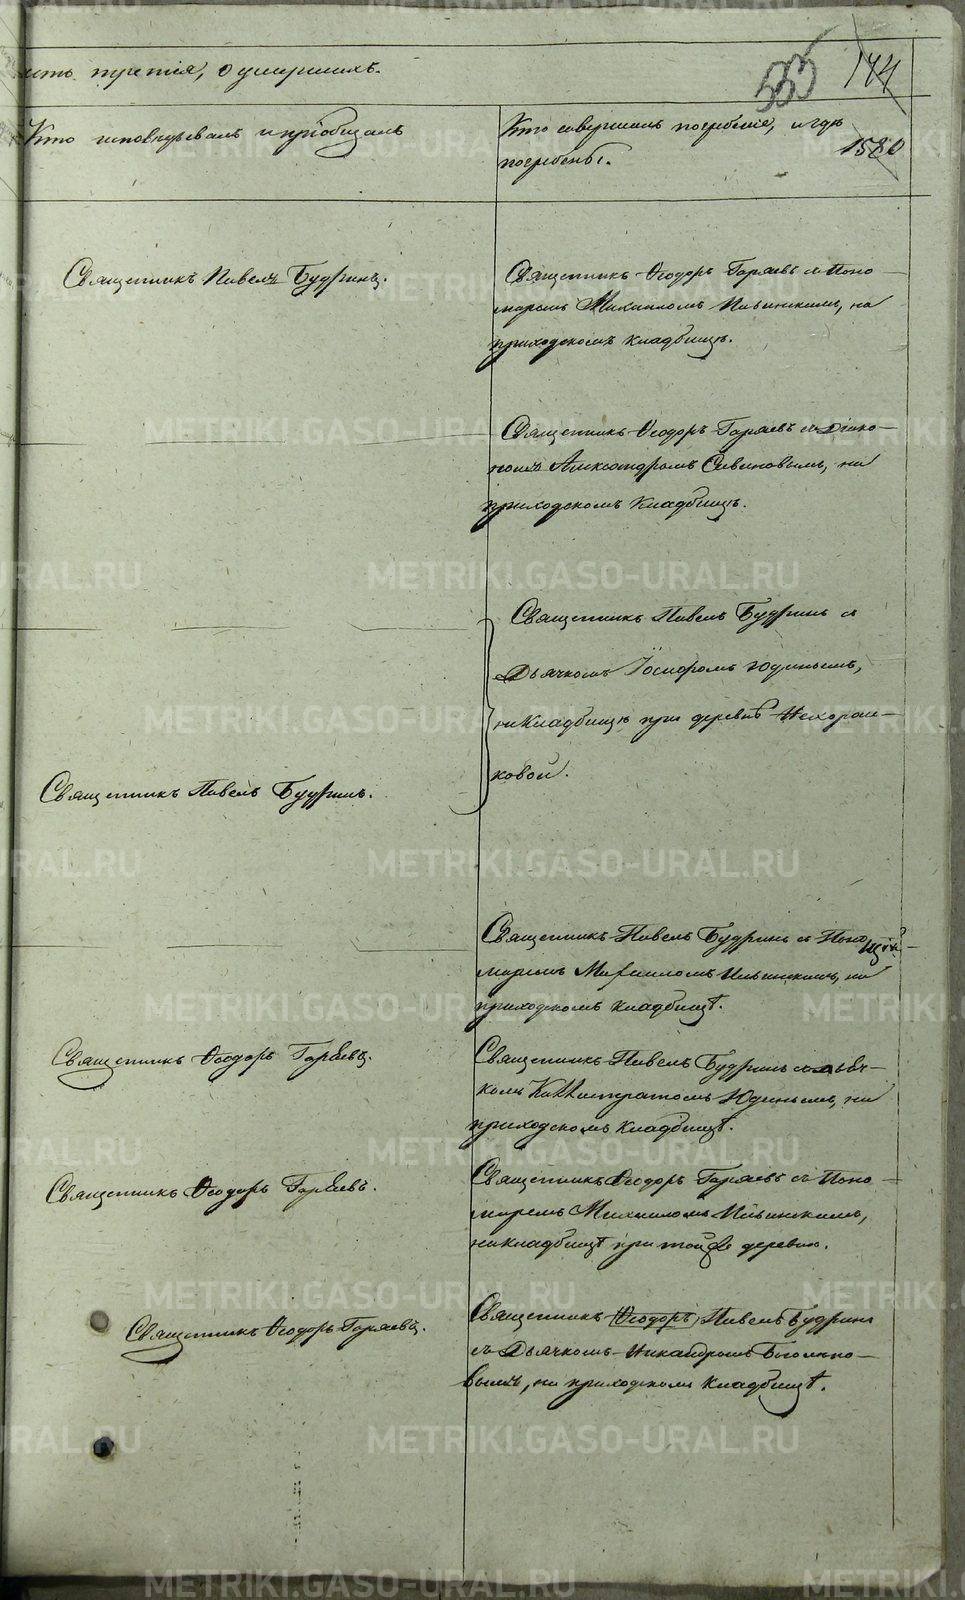 533 144
1580
асть третія, о умершихъ.
Кто исповѣдывалъ и пріобщалъ
Кто совершалъ погребеніе, и гдѣ
погребены.
Священникъ Павелъ Будринъ.
Священникъ Ѳеодоръ Горяевъ съ Поно-
маремъ Михаиломъ Ильинскимъ, на
приходскомъ кладбищѣ.
Священникъ Ѳеодоръ Горяевъ съ Діако-
номъ Александромъ Савиновымъ, на
приходскомъ кладбищѣ.
Священникъ Павелъ Будринъ съ
Дьячкомъ Іосифомъ Юдинымъ,
на кладбищѣ при деревнѣ
ковой.
Священникъ Павелъ Будринъ.
Священникъ Павелъ Будринъ съ Поно-
маремъ Михаиломъ Ильинскимъ, на
приходскомъ кладбищѣ.
Священникъ Ѳеодоръ Горяевъ.
Священникъ Павелъ Будринъ съ Дьяч-
комъ Каллистратомъ Юдинымъ, на
приходскомъ кладбищѣ.
Священникъ Ѳеодоръ Горяевъ.
Священникъ Ѳеодоръ Горяевъ съ Поно-
маремъ Михаиломъ Ильинскимъ,
на кладбищѣ при той же деревнѣ.
Священникъ Ѳеодоръ Горяевъ.
Священникъ (Ѳеодоръ) Павелъ Будринъ
съ Дьячкомъ Никандромъ
вымъ, на приходскомъ кладбищѣ.
METRIKI.GASO-URAL.RU